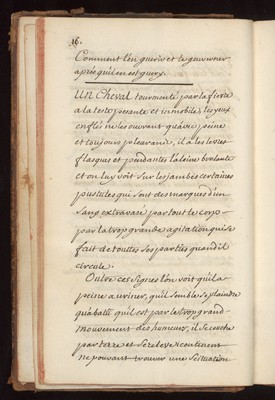 16.
Comment l'on guerir et le gouverner
aprés quil en est guery.
UN Cheval tourmenté par la fievre
a la teste pesante et immobile, les yeux
enflés ne les ouvrant qu'avec peine
et toujours pleurand, il a les levres
flasques et pendantes l'aleine brulante
et on luy voit sur les jambes certaines
pustules qui sont des marques d'un
sang extravasé par tout le corp
par la trop grande agitation qui se
fait de touttes ses parties quand il
circule.
Outre ces signes l'on voit qu'il a
peine a uriner, qu'il semble se plaindre
qu'abatu qu'il est par le trop grand
mouvement des humeurs, il se couche
par terre et se releve incontinent
ne pouvant trouver une situation